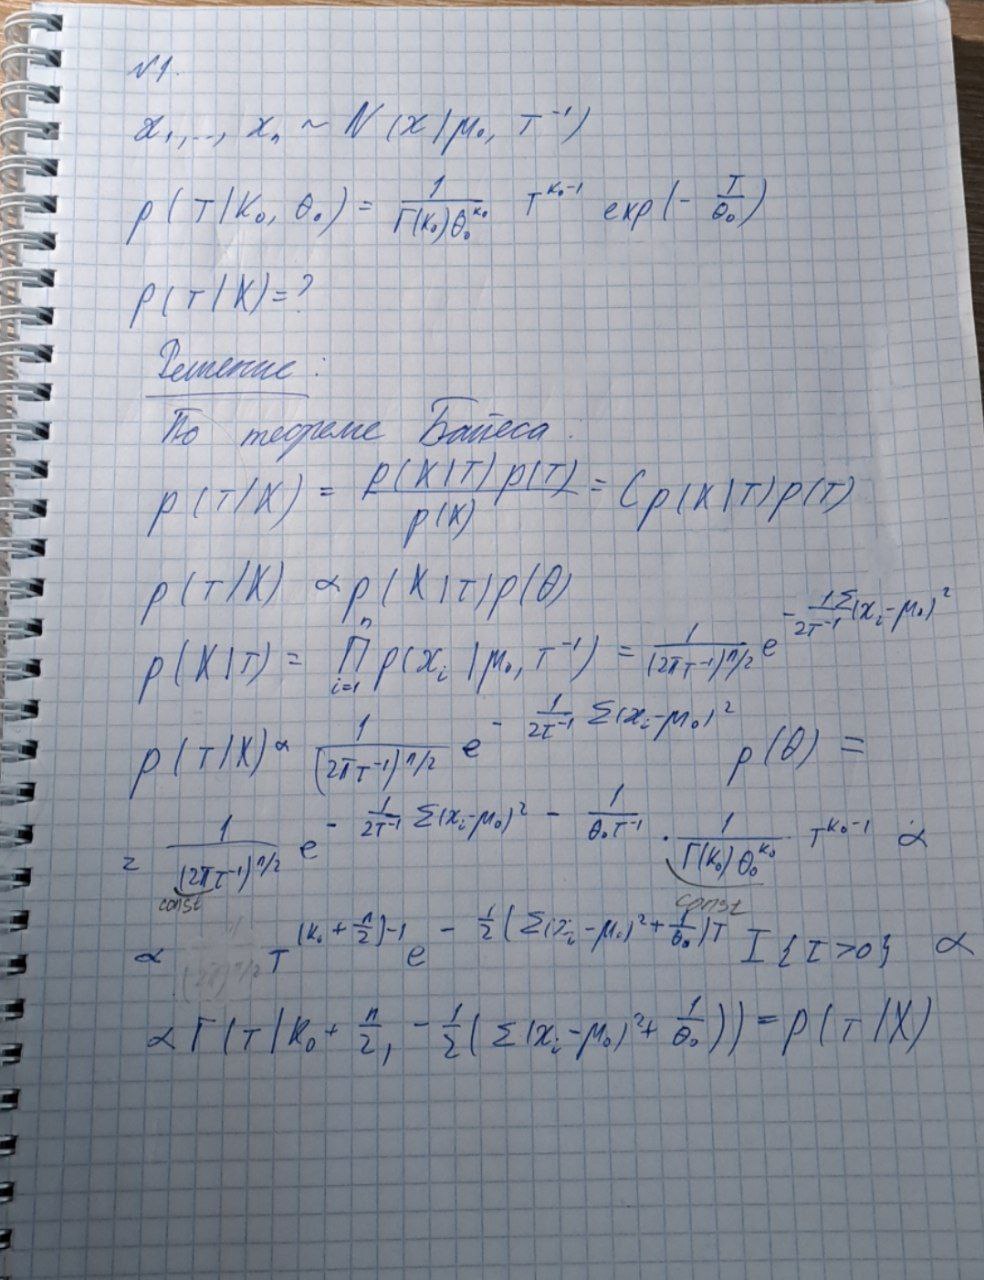 №1.
x₁,..., xₙ ~ N(x|μ₀, τ⁻¹)
p(τ|k₀, θ₀) = 1/(Γ(k₀)θ₀^k₀) τ^(k₀-1) exp(-τ/θ₀)
p(τ|X)=?
Решение:
По теореме Байеса:
p(τ|X) = p(X|τ)p(τ)/p(X) = Cp(X|τ)p(τ)
p(τ|X) ∝ p(X|τ)p(θ)
p(X|τ) = ∏_{i=1}^{n} p(xᵢ|μ₀, τ⁻¹) = 1/(2πτ⁻¹)^(n/2) e^(-1/(2τ⁻¹) Σ(xᵢ-μ₀)²)
p(τ|X) ∝ 1/(2πτ⁻¹)^(n/2) e^(-1/(2τ⁻¹) Σ(xᵢ-μ₀)²) p(θ) =
= 1/(2πτ⁻¹)^(n/2) e^(-1/(2τ⁻¹) Σ(xᵢ-μ₀)² - 1/(θ₀τ⁻¹)) · 1/(Γ(k₀)θ₀^k₀) τ^(k₀-1) ∝
const const
∝ τ^((k₀+n/2)-1) e^(-1/2(Σ(xᵢ-μ₀)²+1/θ₀)τ) I{τ>0} ∝
∝ Γ(τ|k₀+n/2, -1/2(Σ(xᵢ-μ₀)²+1/θ₀)) = p(τ|X)